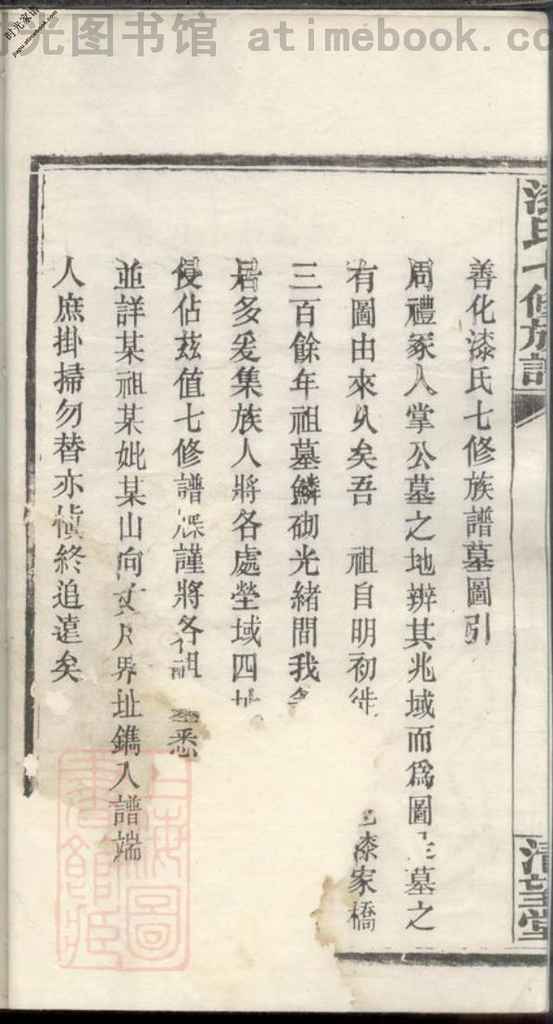 时光图书馆 atimebook.com
漆氏七修族譜
清望堂
善化漆氏七修族譜墓圖引
周禮冢人掌公墓之地辨其兆域而爲圖 墓之
有圖由來久矣吾 祖自明初徙 漆家橋
三百餘年祖墓鱗砌光緒間我
居多爰集族人將各處塋域四址
侵佔茲值七修譜牒謹將各祖 墓悉
並詳某祖某妣某山向丈尺界址鐫入譜端
人庶掛掃勿替亦慎終追遠矣
上海圖書館藏